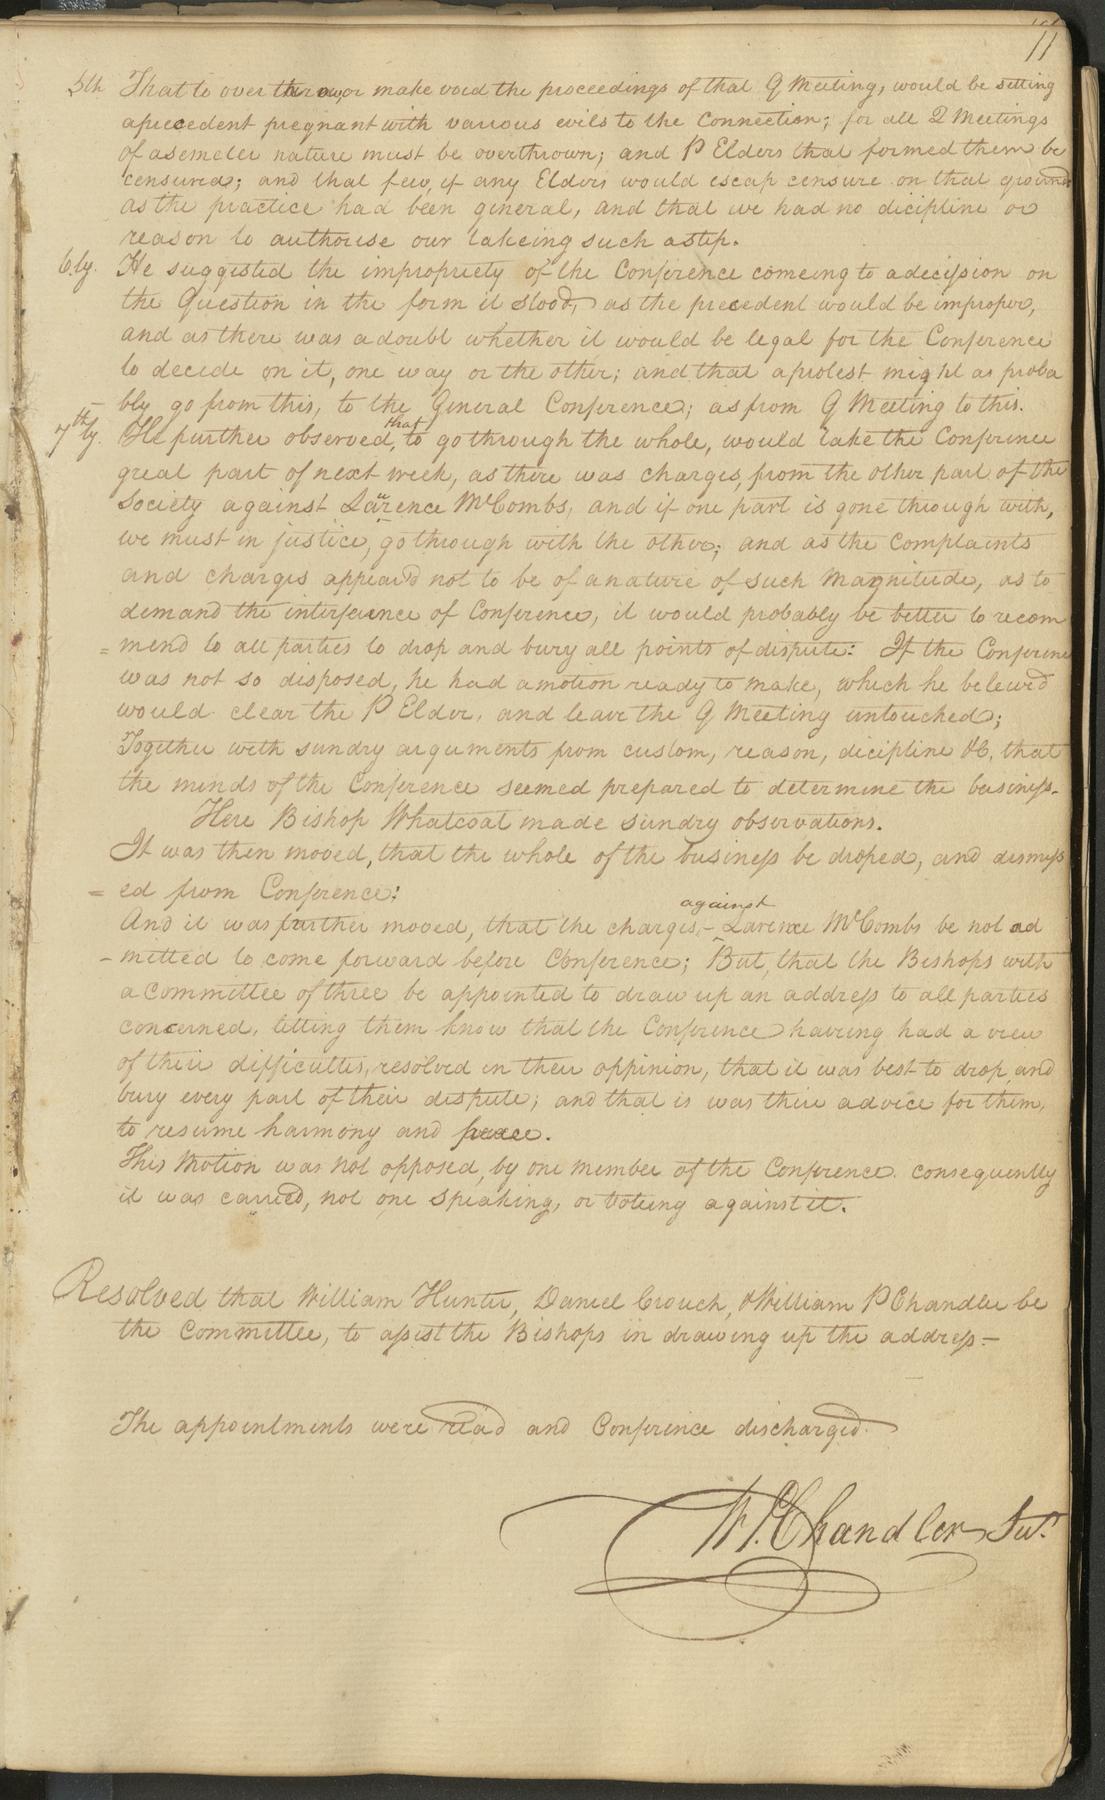 11
5th That to over throw, or make void the proceedings of that Q Meeting, would be setting
a precedent pregnant with various evils to the Connection; for all Q Meetings
of a semeler nature must be overthrown; and P Elders that formed them be
censured; and that few, if any Elders would escap censure on that ground
as the practice had been general, and that we had no dicipline or
reason to authorise our takeing such a step.
6.ly. He suggested the impropriety of the Conference comeing to a decission on
the Question in the form it stood, as the precedent would be improper,
and as there was a doubt whether it would be legal for the Conference
to decide on it, one way or the other; and that a protest might as proba
- bly go from this, to the General Conference; as from Q Meeting to this.
7thly. He further observed, that to go through the whole, would take the Conference
great part of next week, as there was charges, from the other part of the
Society against Larence McCombs, and if one part is gone through with,
we must in justice, go through with the other; and as the complaints
and charges appear'd not to be of a nature of such magnitude, as to
demand the interference of Conference, it would probably be better to recom
= mend to all parties to drop and bury all points of dispute: If the Conference
was not so disposed, he had a motion ready to make, which he beleiv'd
would clear the P Elder, and leave the Q Meeting untouched;
Together with sundry arguments from custom, reason, dicipline &c, that
the minds of the Conference seemed prepared to determine the business.
Here Bishop Whatcoat made sundry observations.
It was then moved, that the whole of the business be droped, and dismiss
= ed from Conference:
And it was further moved, that the charges, against Larence McCombs be not ad
- mitted to come forward before Conference; But, that the Bishops with
a committee of three be appointed to draw up an address to all parties
concerned, letting them know that the Conference having had a view
of their difficultis, resolved in their oppinion, that it was best to drop and
bury every part of their dispute; and that is was their advice for them,
to resume harmony and peace.
This Motion was not opposed, by one member of the Conference consequently
it was carried, not one speaking, or voteing against it.
Resolved that William Hunter, Daniel Crouch, & William P Chandler be
the Committee, to assist the Bishops in drawing up the address -
The appointments were read and Conference discharged.
W. P. Chandler Sec.